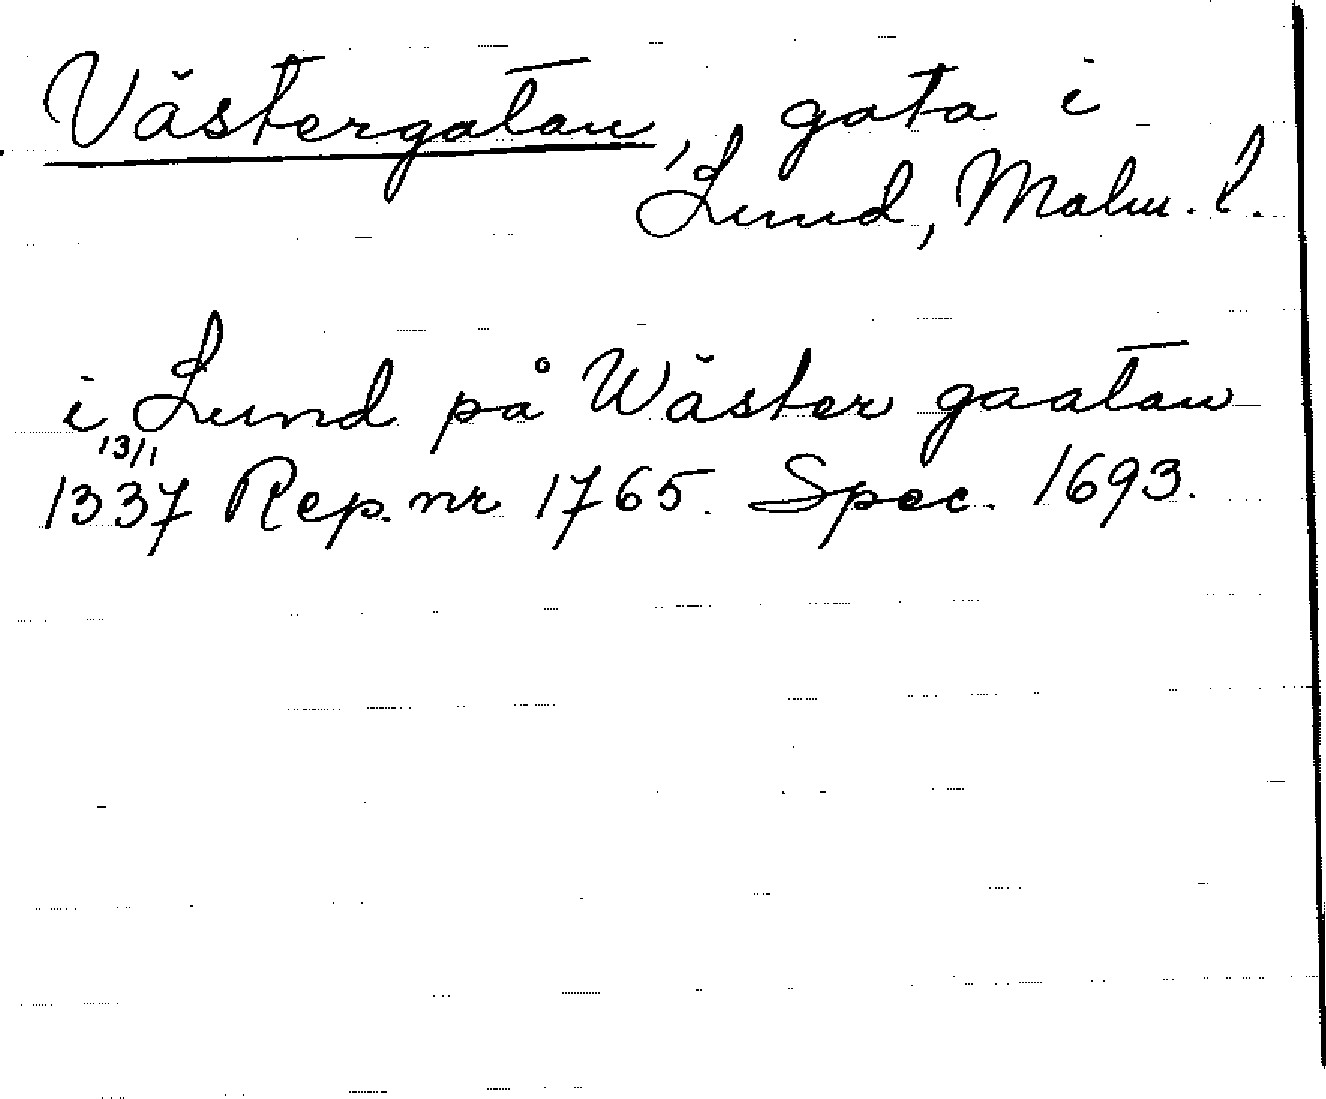 Västergatan, gata i
Lund, Malm. l.
i Lund på Wäster gaatan
13/1
1337 Rep. nr 1765. Spec. 1693.